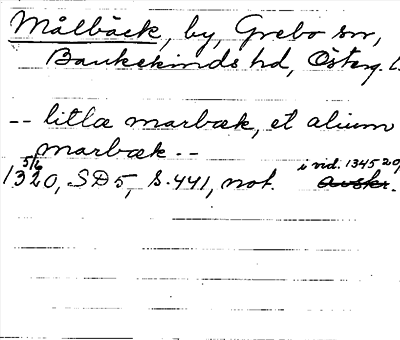 Målbäck, by, Grebo sn,
Bankekinds hd, Österg. l.
-- litlæ marbæk, et alium
marbæk --
5/6
1320, SD 5, s. 441, not. i vid. 1345 20/
Avskr.